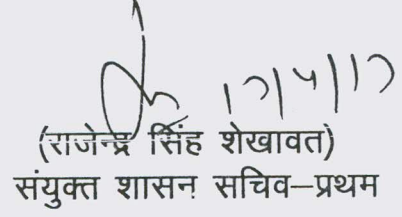 17/4/17
(राजेन्द्र सिंह शेखावत)
संयुक्त शासन सचिव–प्रथम